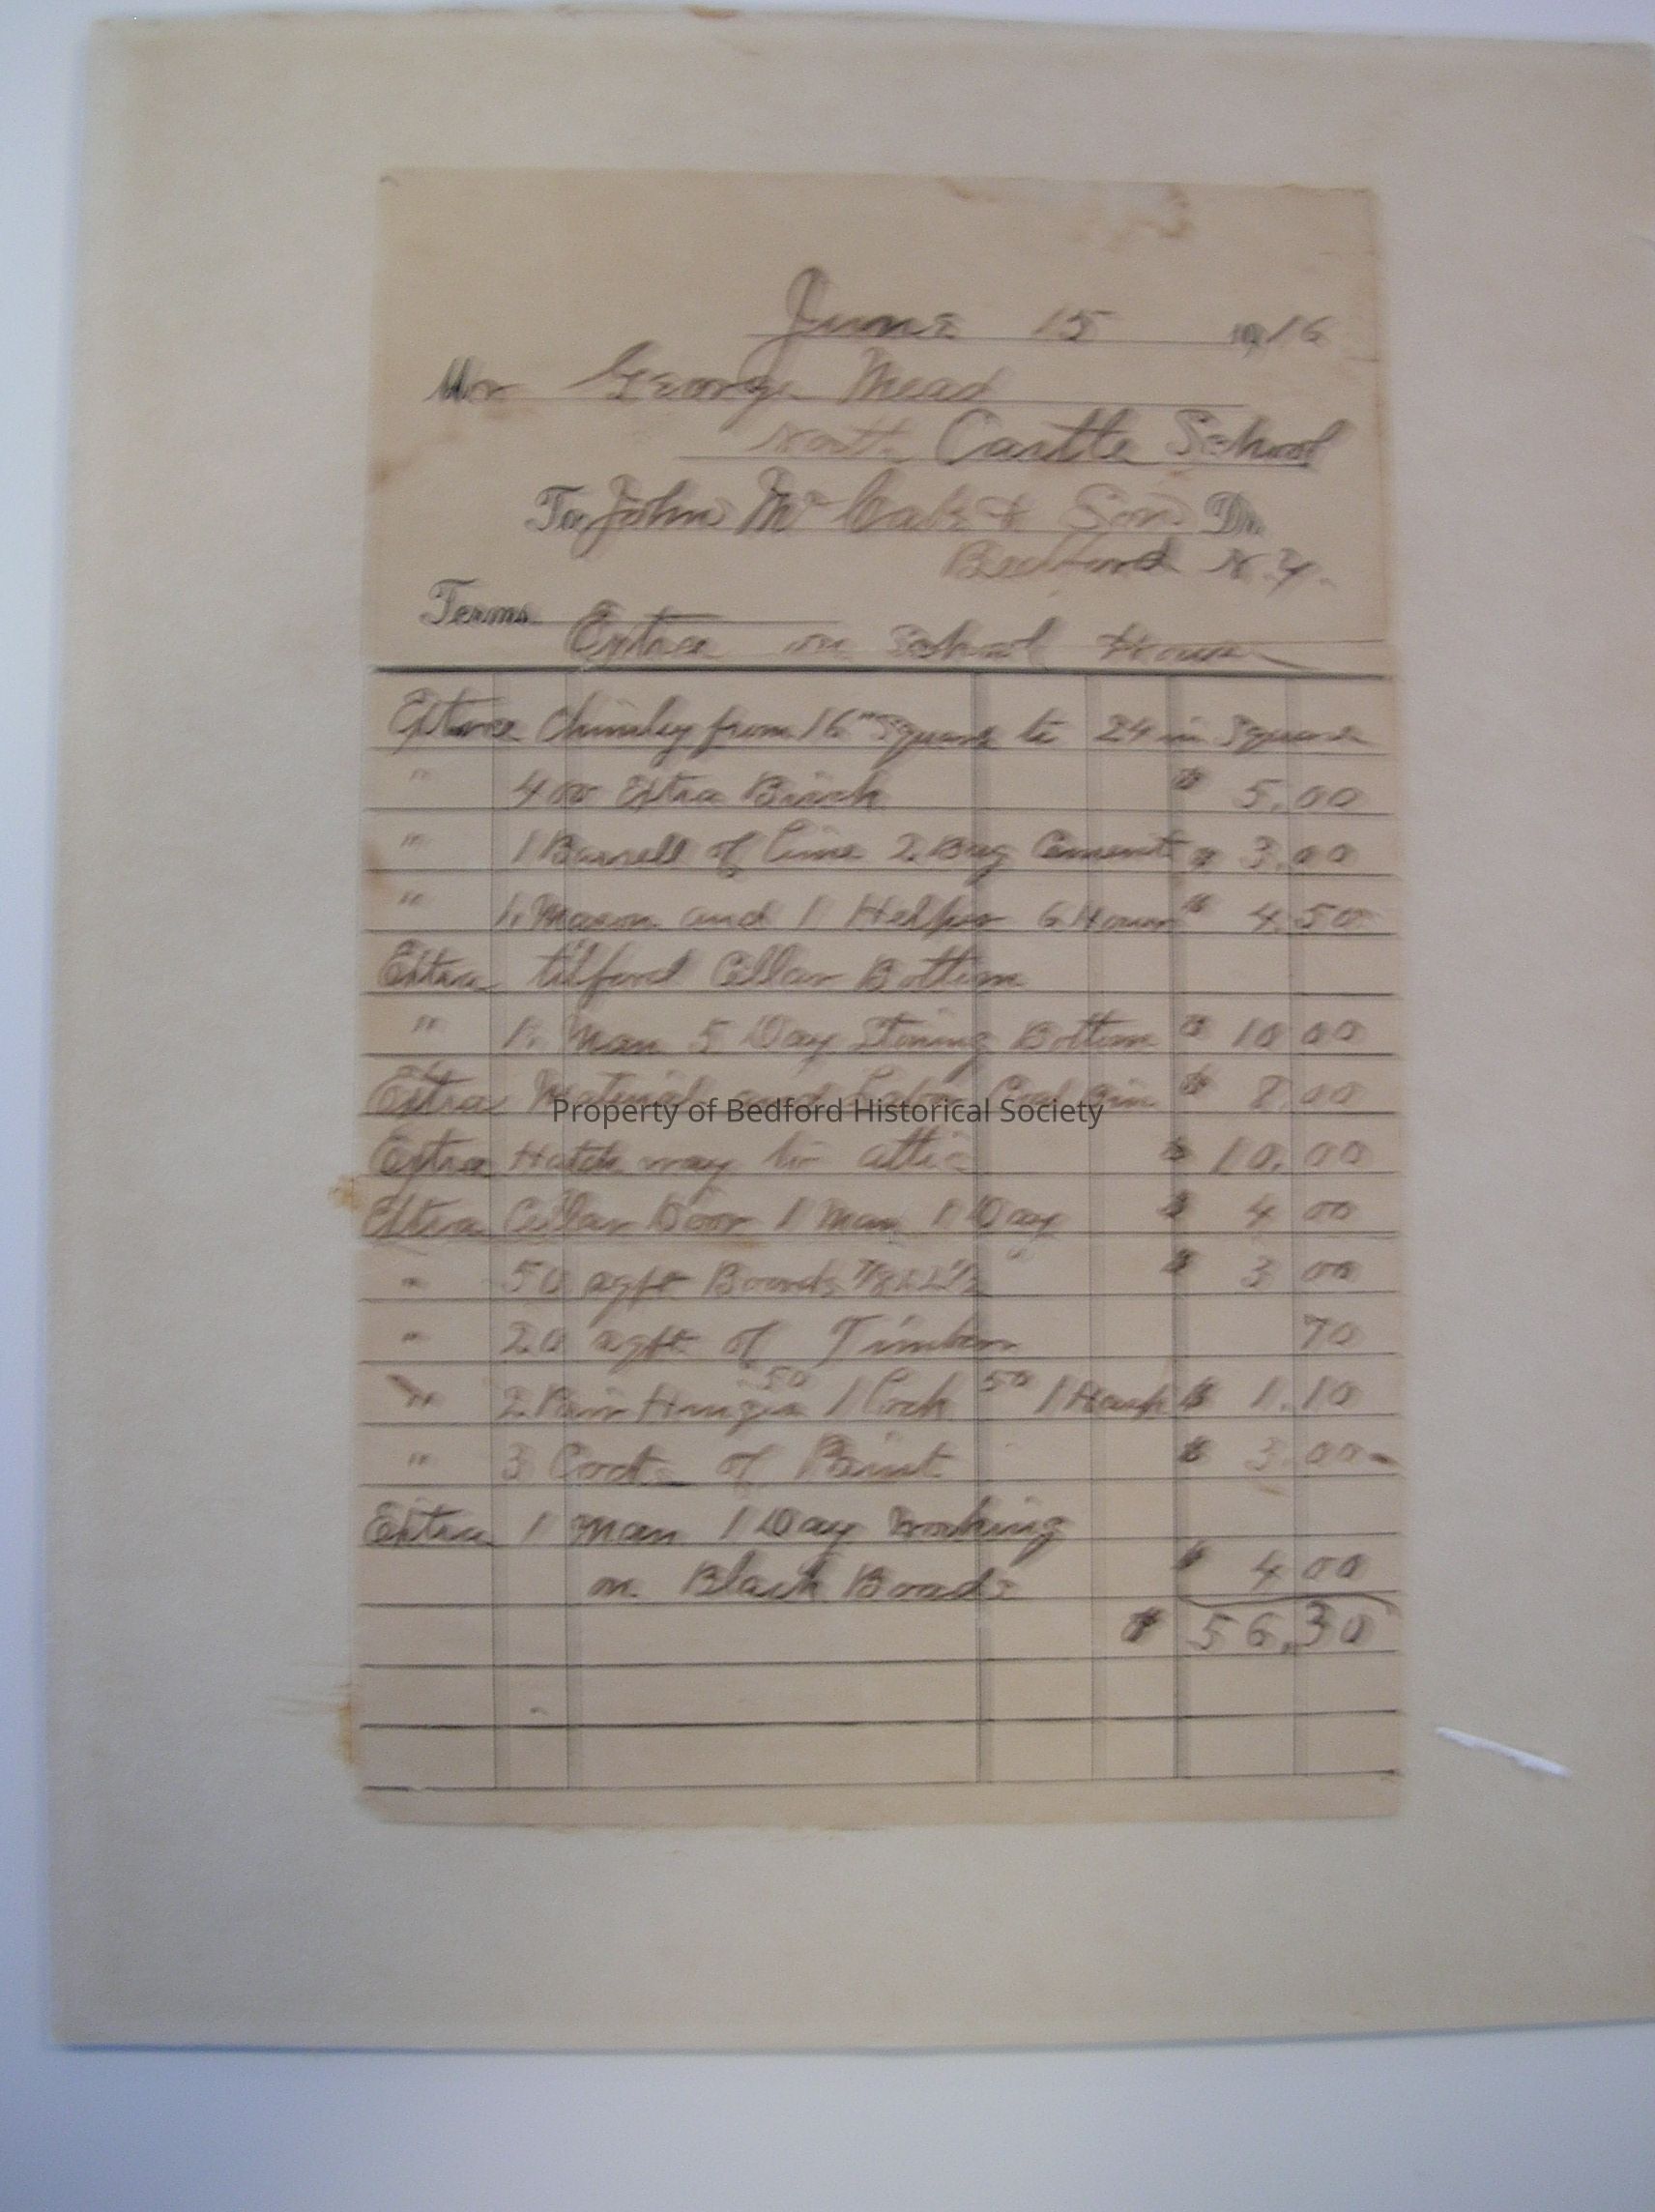 June 15 1916
Mr George Mead
North Castle School
To John Mc Cabe & Son Dr.
Bedford N.Y.
Terms
Extra on School House
Extra Chimley from 16" Square to 24 in Square
" 400 Extra Brick $ 5.00
" 1 Barrell of Lime 2 Bag Cement $ 3.00
" 1. Mason and 1 Helper 6 Hour $ 4.50
Extra Cellar Bottom
" 1. Man 5 Day Stoning Bottom $ 10 00
Extra Material and Labor Coal Bin $ 8.00
Extra Hatch way to attic $ 10.00
Extra Cellar Door 1 Man 1 Day $ 4 00
" 50 sqft Boards 7/8 x 2 1/2 $ 3 00
" 20 sqft of Timber 70
" 2 Pair Hinges 50 1 Lock 50 1 Hasp $ 1.10
" 3 Coats of Paint $ 3.00
Extra 1 Man 1 Day Working
on Black Boads $ 4 00
$ 56.30
Property of Bedford Historical Society